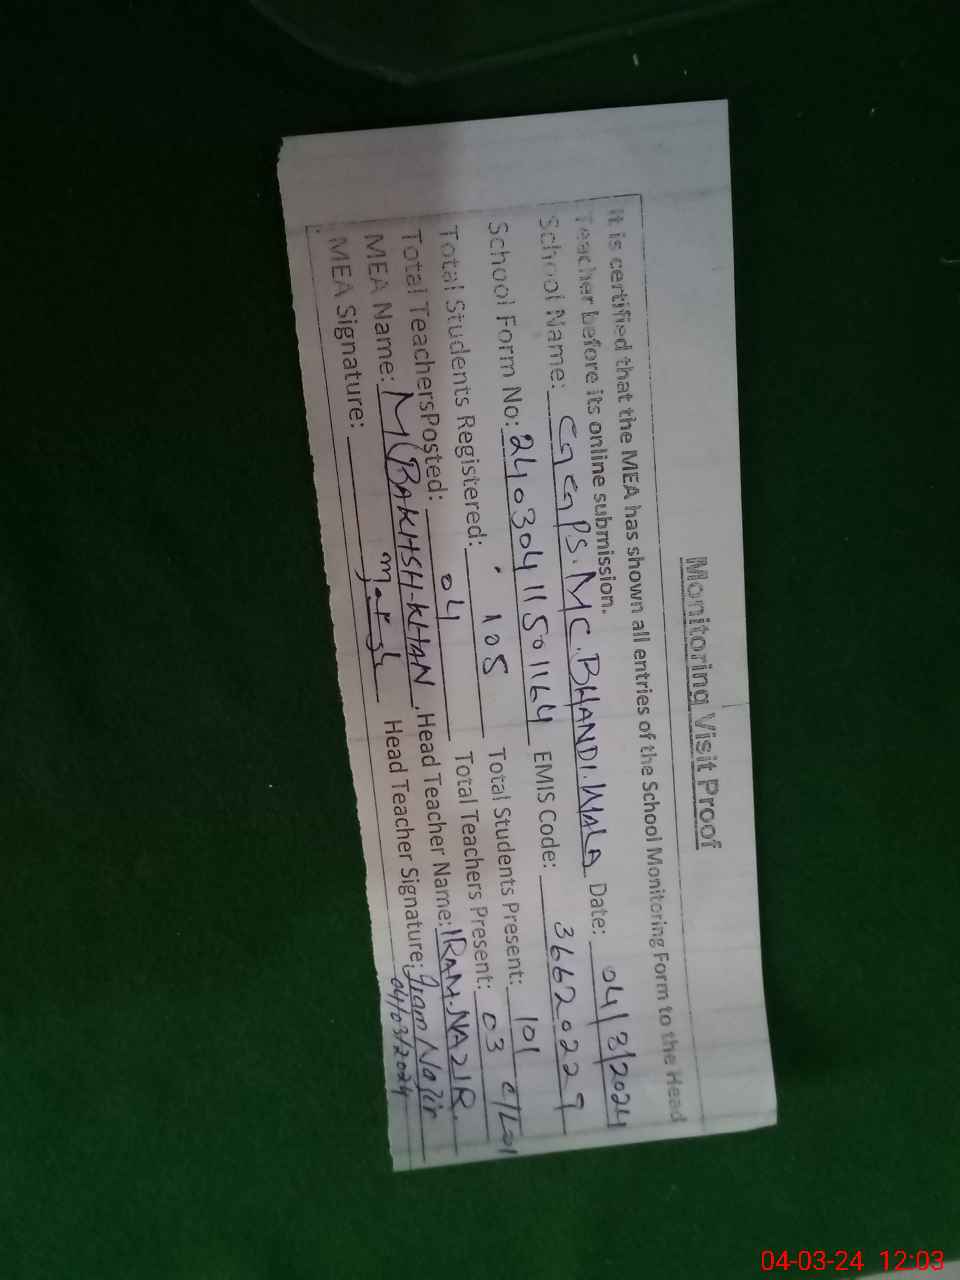 Monitoring Visit Proof
It is certified that the MEA has shown all entries of the School Monitoring Form to the Head
Teacher before its online submission.
School Name: GGPS.MC.BHANDI.WALA Date: 04/3/2024
School Form No: 24030411501164 EMIS Code: 36620229
Total Students Registered: 105 Total Students Present: 101
Total TeachersPosted: 04 Total Teachers Present: 03 C/L=01
MEA Name: M.BAKHSH.KHAN Head Teacher Name: IRAM.NAZIR
MEA Signature: Head Teacher Signature: Iram Nazir
04/03/2024
04-03-24 12:03